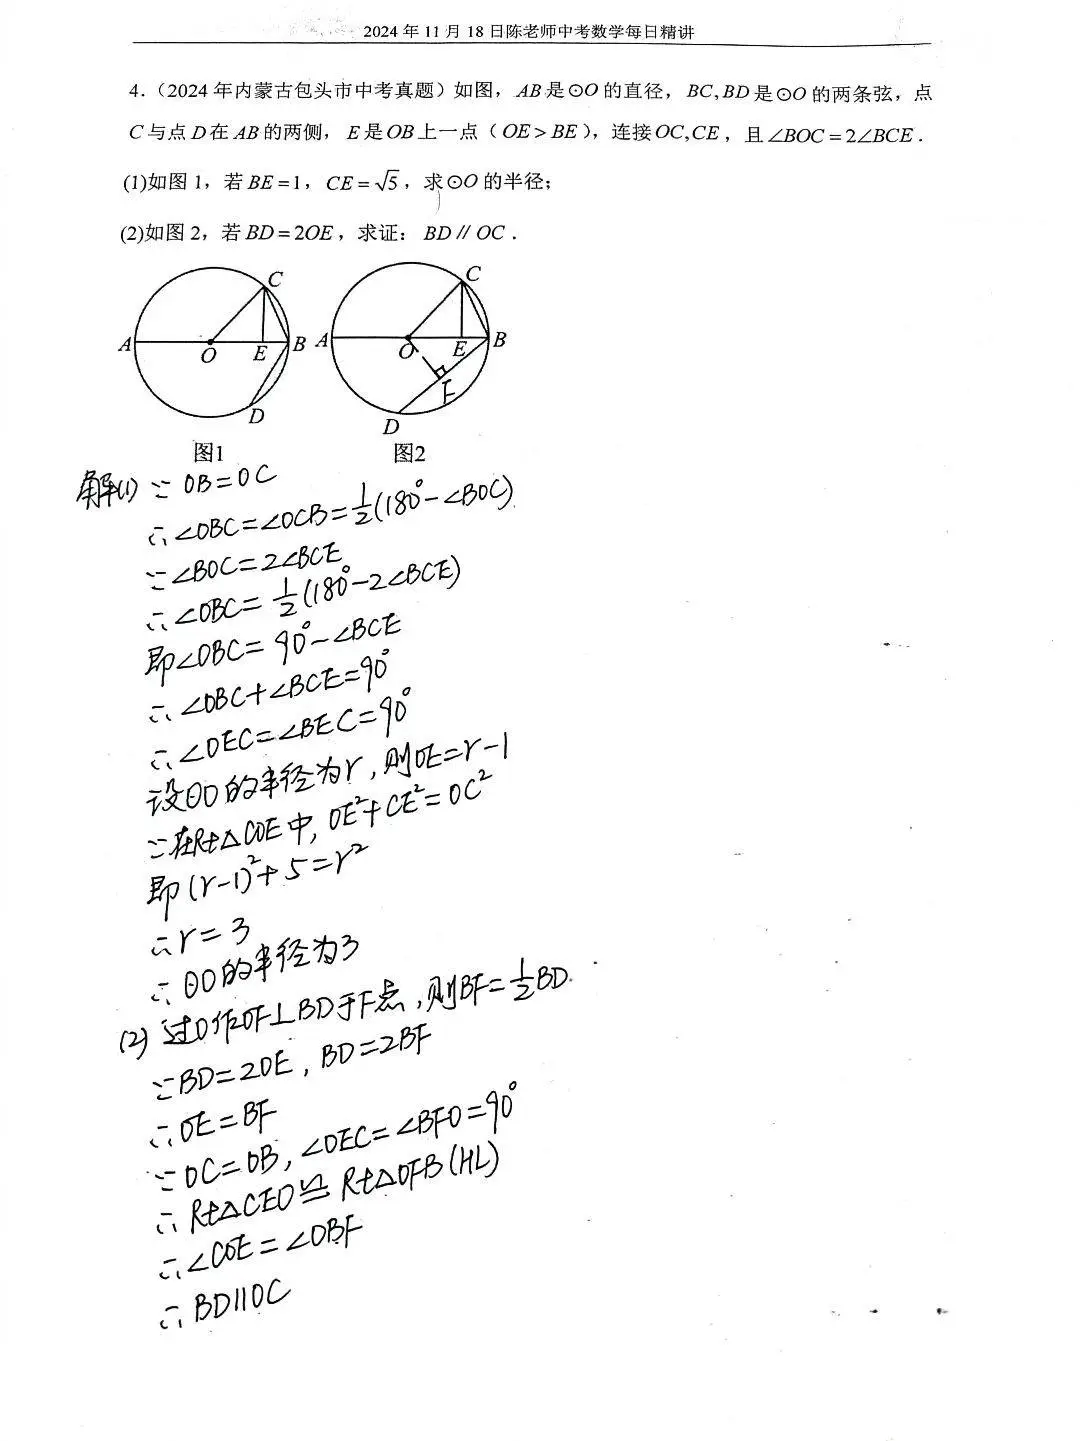 2024年11月18日陈老师中考数学每日精讲
4.（2024年内蒙古包头市中考真题）如图，AB是⊙O的直径，BC,BD是⊙O的两条弦，点
C与点D在AB的两侧，E是OB上一点（OE>BE），连接OC,CE，且∠BOC=2∠BCE.
(1)如图1，若BE=1，CE=√5，求⊙O的半径；
(2)如图2，若BD=2OE，求证：BD∥OC.
C
A O E B
D
图1
C
A O E B
F
D
图2
解(1) ∵ OB=OC
∴ ∠OBC=∠OCB=1/2(180°-∠BOC)
∵ ∠BOC=2∠BCE
∴ ∠OBC=1/2(180°-2∠BCE)
即∠OBC=90°-∠BCE
∴ ∠OBC+∠BCE=90°
∴ ∠OEC=∠BEC=90°
设⊙O的半径为r，则OE=r-1
∵在Rt△COE中，OE²+CE²=OC²
即(r-1)²+5=r²
∴r=3
∴ ⊙O的半径为3
(2) 过O作OF⊥BD于F点，则BF=1/2BD.
∵BD=2OE，BD=2BF
∴OE=BF
∵OC=OB，∠OEC=∠BFO=90°
∴ Rt△CEO≌Rt△OFB(HL)
∴∠COE=∠OBF
∴ BD∥OC